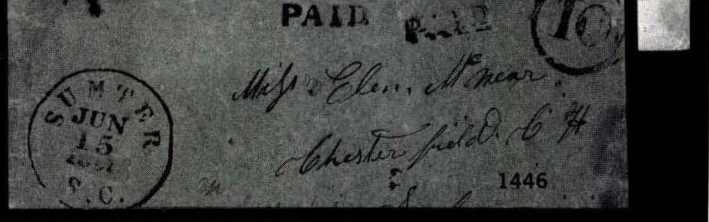 PAID PAID 10
SUMTER
JUN
15
S.C.
Miss Ellen McNear
Chesterfield C H
1446